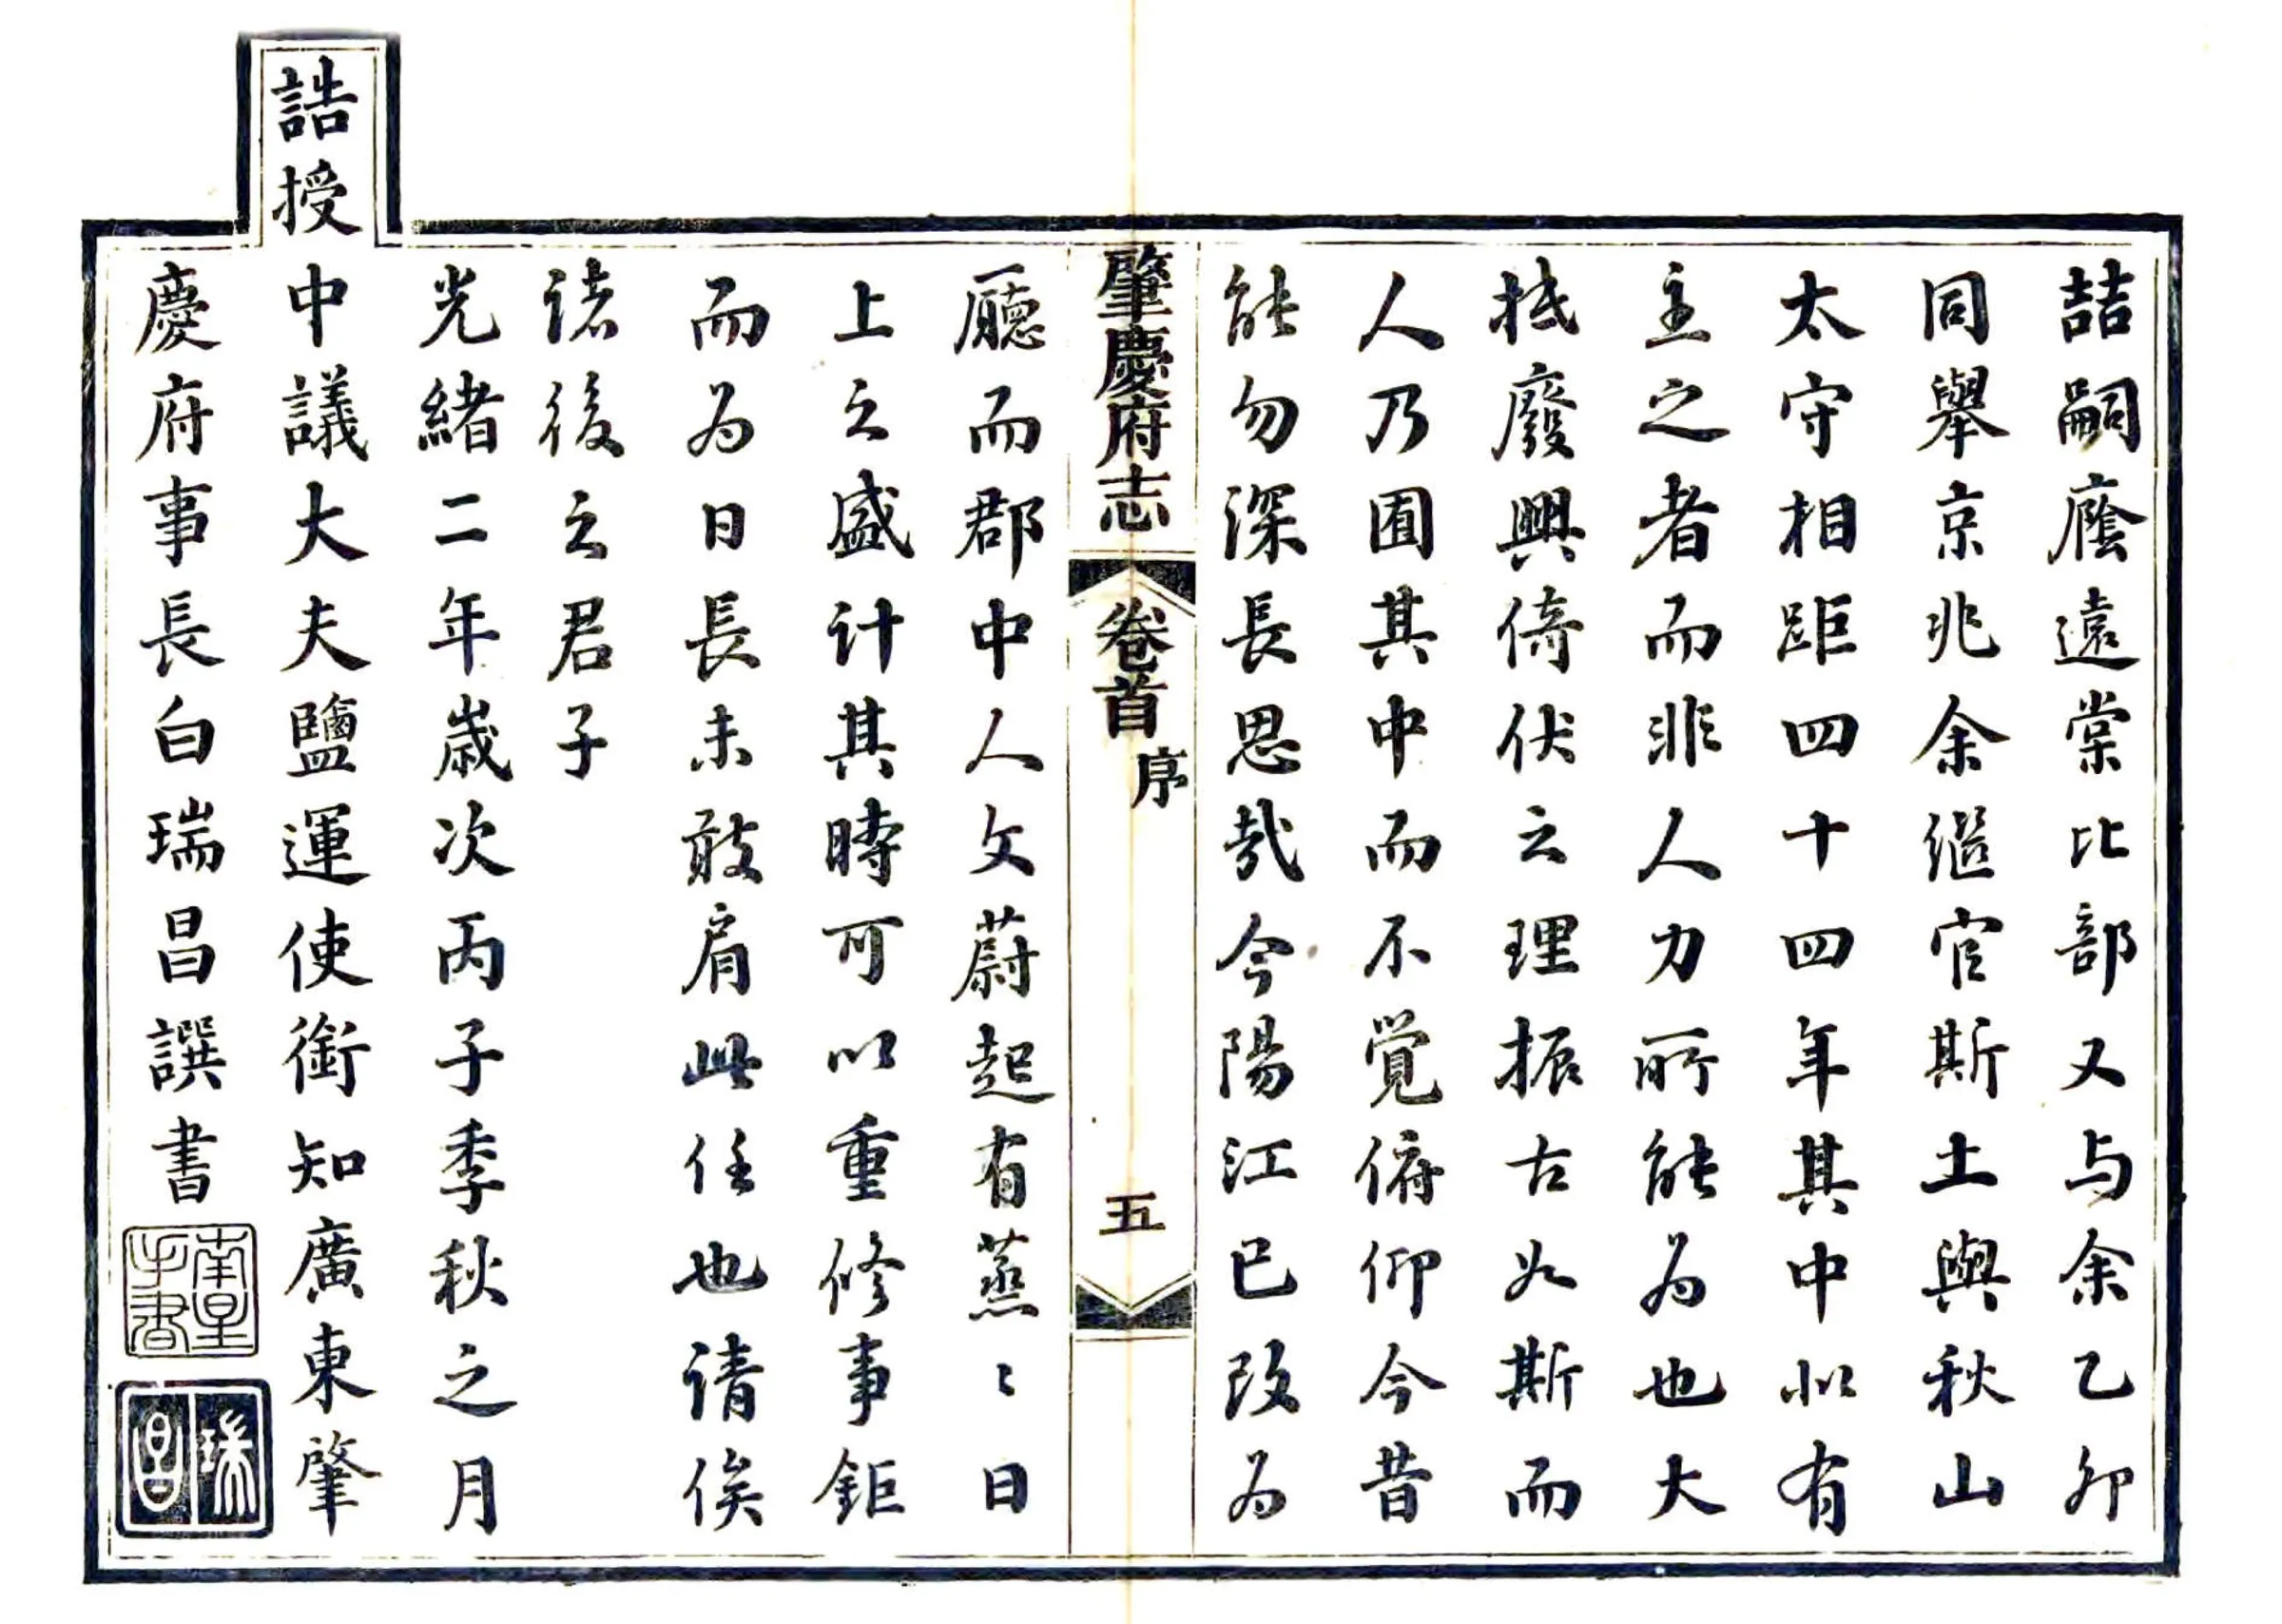 喆嗣廕遠棠比部又与余乙卯
同舉京兆余繼官斯土與秋山
太守相距四十四年其中似有
主之者而非人力所能为也大
抵廢興倚伏之理振古如斯而
人乃囿其中而不覺俯仰今昔
能勿深長思哉今陽江已改为
肇慶府志
卷首
序
五
廳而郡中人文蔚起有蒸〻日
上之盛计其時可以重修事鉅
而为日長未敢肩此任也请俟
诸後之君子
光緒二年歲次丙子季秋之月
誥授中議大夫鹽運使銜知廣東肇
慶府事長白瑞昌譔書
瑞昌